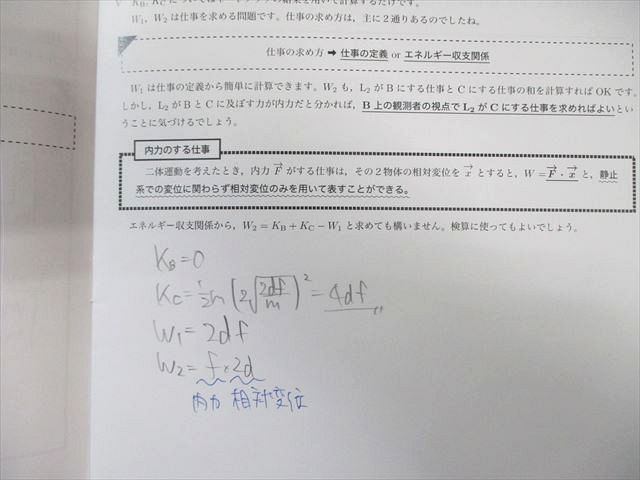 W₁, W₂ は仕事を求める問題です。仕事の求め方は，主に２通りあるのでしたね。
仕事の求め方 ➡ 仕事の定義 or エネルギー収支関係
W₁ は仕事の定義から簡単に計算できます。W₂ も，L₂ が B にする仕事と C にする仕事の和を計算すれば OK です。
しかし，L₂ が B と C に及ぼす力が内力だと分かれば，B 上の観測者の視点で L₂ が C にする仕事を求めればよいとい
うことに気づけるでしょう。
内力のする仕事
二体運動を考えたとき，内力 F→ がする仕事は，その２物体の相対変位を x→ とすると，W = F→・x→ と，静止
系での変位に関わらず相対変位のみを用いて表すことができる。
エネルギー収支関係から，W₂ = K_B + K_C − W₁ と求めても構いません。検算に使ってもよいでしょう。
K_B = 0
K_C = ½m(2√(2df/m))² = 4df
W₁ = 2df
W₂ = f × 2d
内力 相対変位